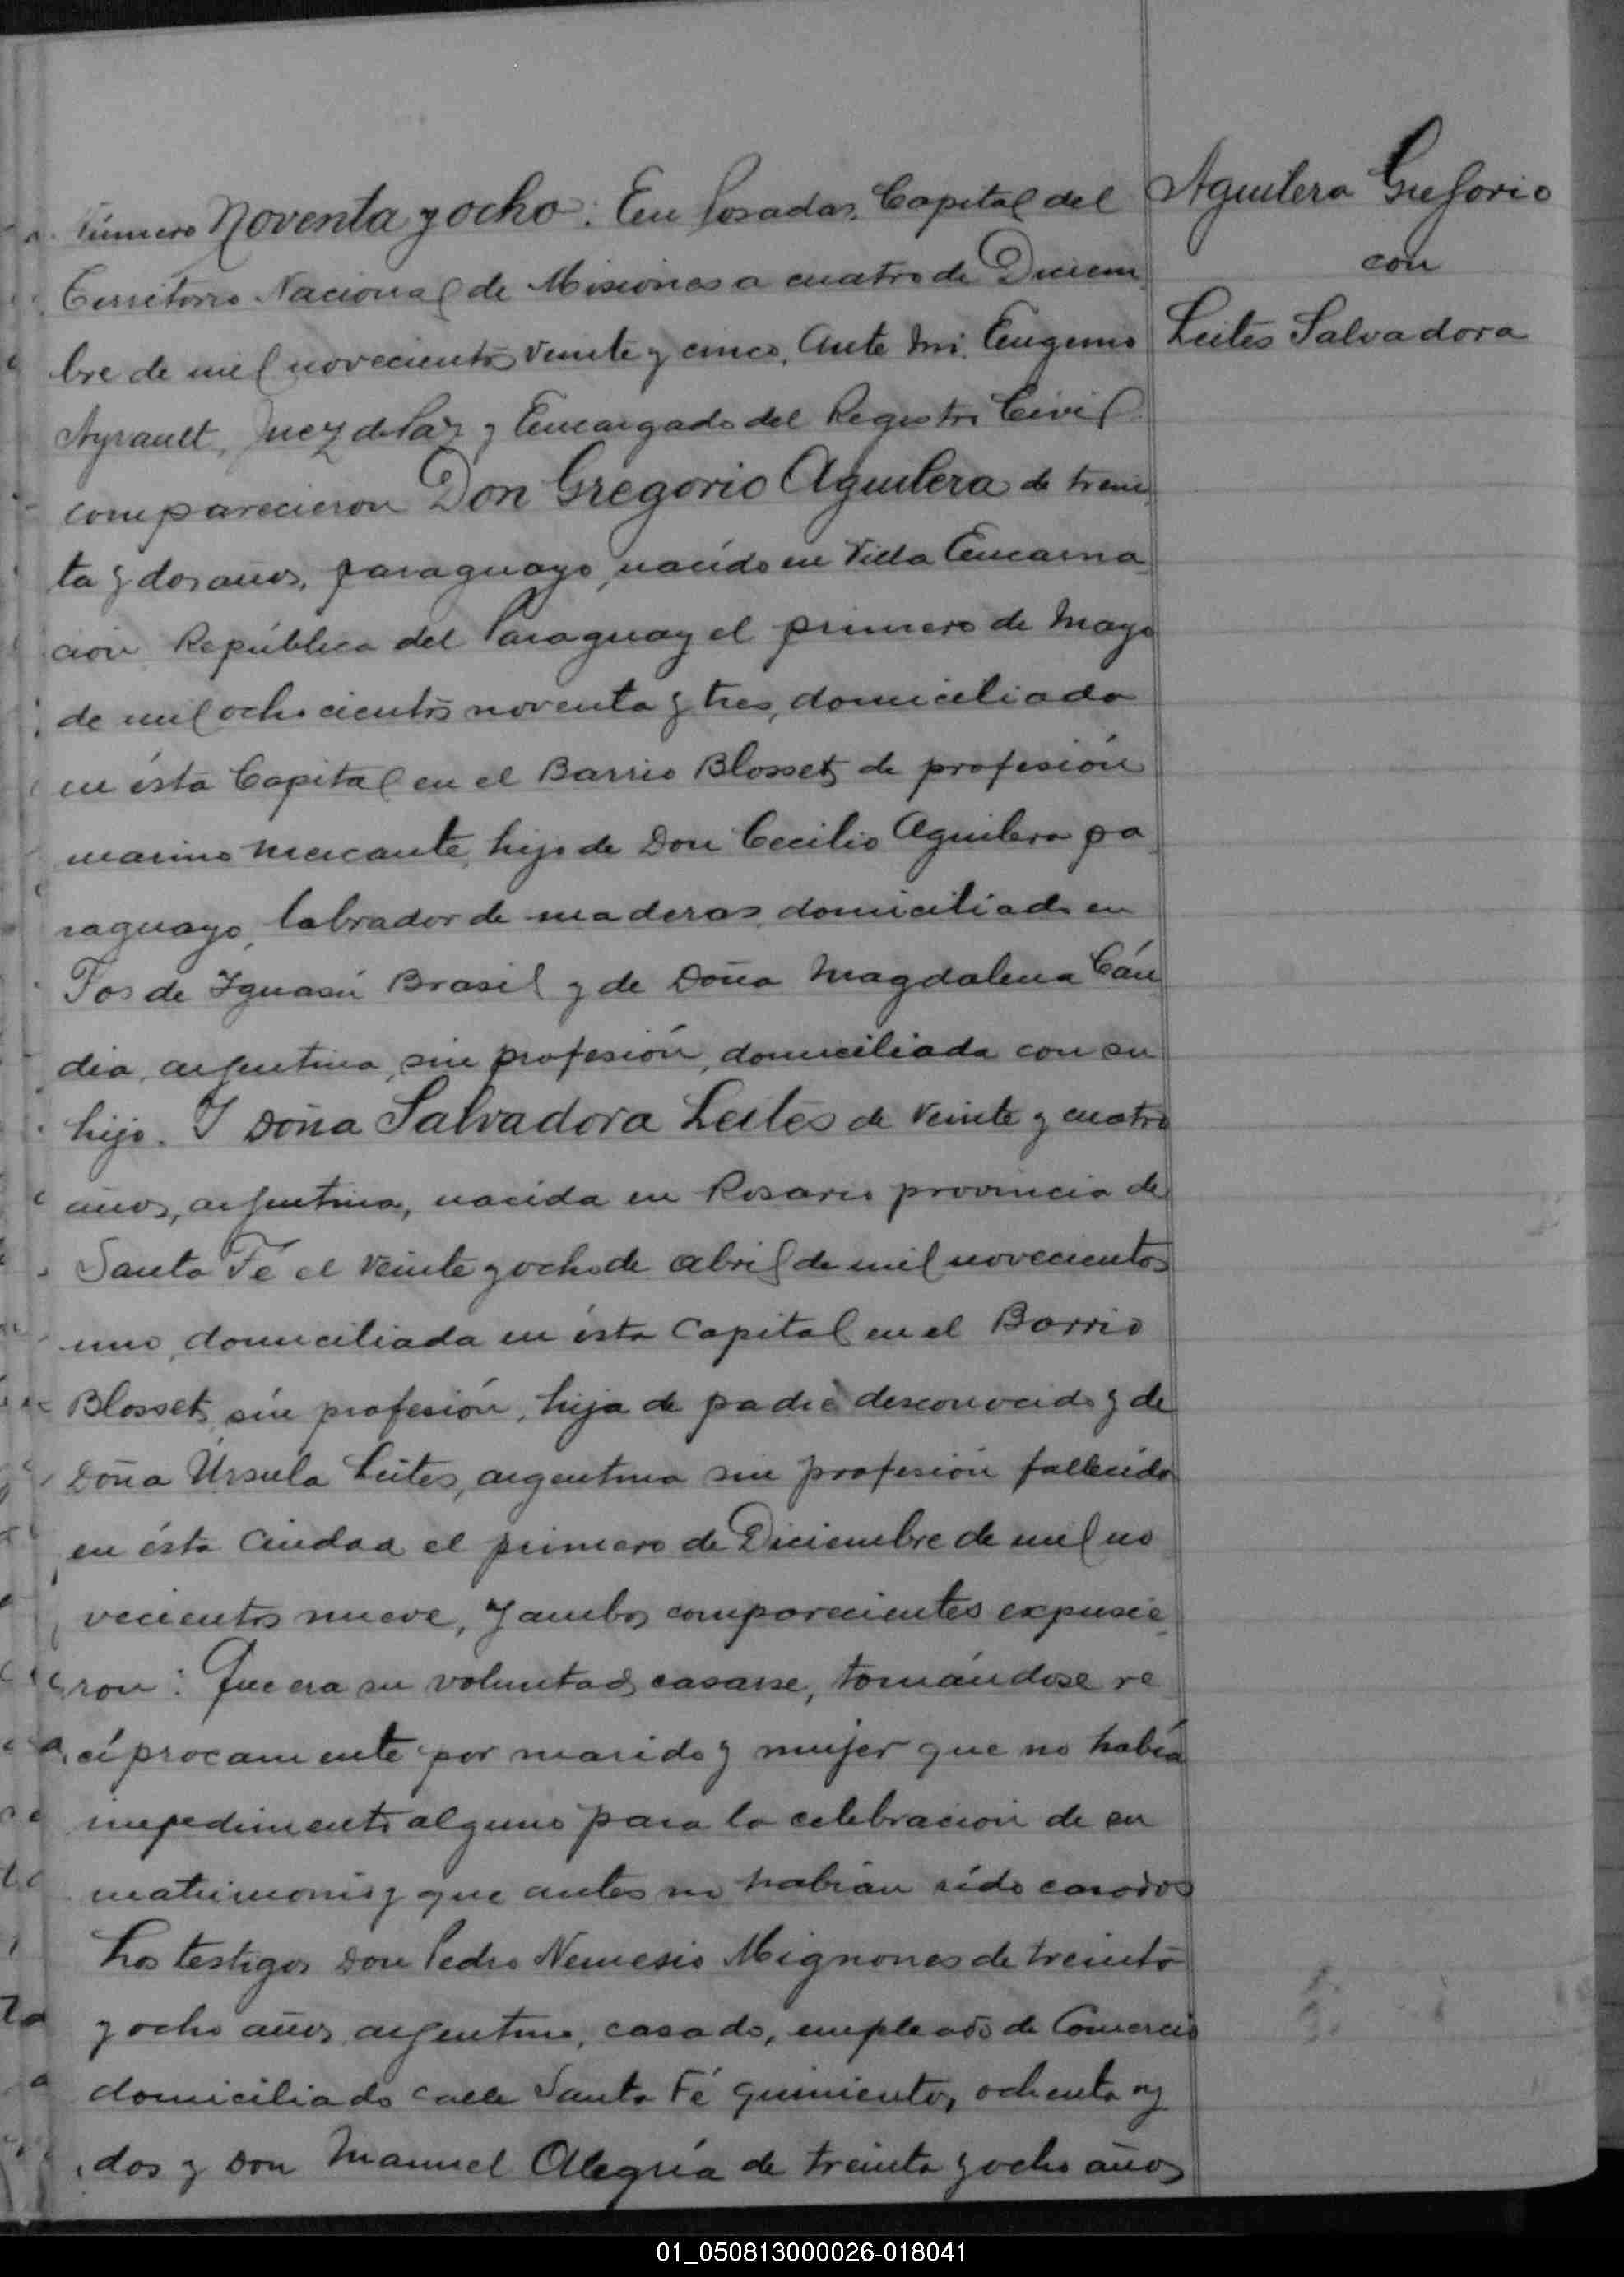 Aguilera Gregorio
con
Leites Salvadora
Número Noventa y ocho: En Posadas, Capital del
Territorio Nacional de Misiones a cuatro de Diciem
bre de mil novecientos veinte y cinco, Ante Mi, Eugenio
Ayrault, Juez de Paz y Encargado del Registro Civil
comparecieron Don Gregorio Aguilera de trein
ta y dos años, paraguayo, nacido en Villa Encarna
ción República del Paraguay el primero de Mayo
de mil ochocientos noventa y tres, domiciliado
en ésta Capital en el Barrio Blosset, de profesión
marino mercante, hijo de Don Cecilio Aguilera pa
raguayo, labrador de maderas, domiciliado en
Fos de Iguasú Brasil y de Doña Magdalena Cán
dia, argentina, sin profesión, domiciliada con su
hijo. Y Doña Salvadora Leites de veinte y cuatro
años, argentina, nacida en Rosario provincia de
Santa Fé el veinte y ocho de abril de mil novecientos
uno, domiciliada en ésta Capital en el Barrio
Blosset, sin profesión, hija de padre desconocido y de
Doña Úrsula Leites, argentina sin profesión fallecida
en ésta Ciudad el primero de Diciembre de mil no
vecientos nueve, y ambos comparecientes expusie
ron: Que era su voluntad casarse, tomándose re
cíprocamente por marido y mujer que no había
impedimento alguno para la celebración de su
matrimonio y que antes no habían sido casados
Los testigos Don Pedro Nemesio Mignones de treinta
y ocho años argentino, casado, empleado de Comercio
domiciliado calle Santa Fé quinientos, ochenta y
dos y Don Manuel Alegría de treinta y ocho años
01_050813000026-018041